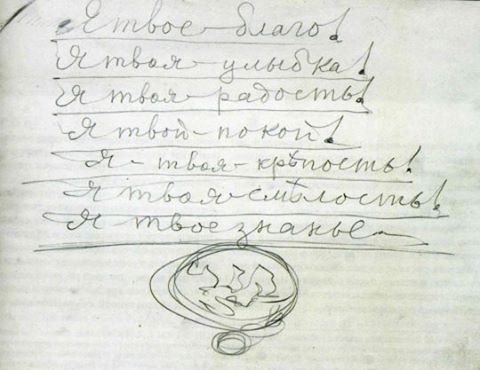 Я твое – благо!
Я твоя – улыбка!
Я твоя – радость!
Я твой – покой!
Я – твоя – крѣпость!
Я твоя – смѣлость!
Я твое знанье –